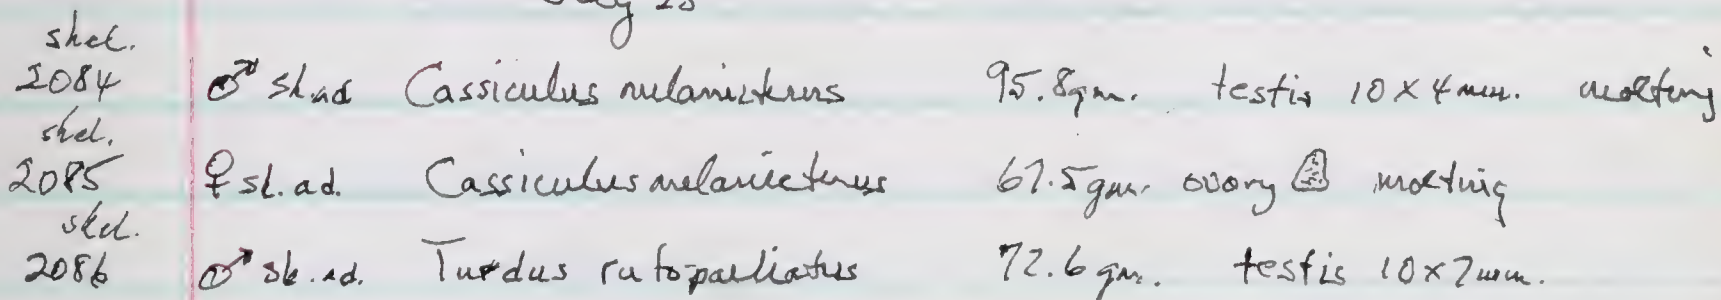 July 25
skel.
2084 ♂ sk.ad Cassiculus melanicterus 95.8gm. testis 10 x 4 mm. molting
skel.
2085 ♀ sk. ad. Cassiculus melanicterus 67.5gm. ovary molting
skel.
2086 ♂ sk. ad. Turdus rufo-palliatus 72.6 gm. testis 10 x 7 mm.